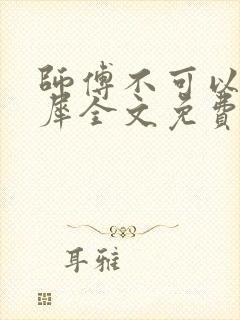 師傅不可以
犀全文免費
耳雅